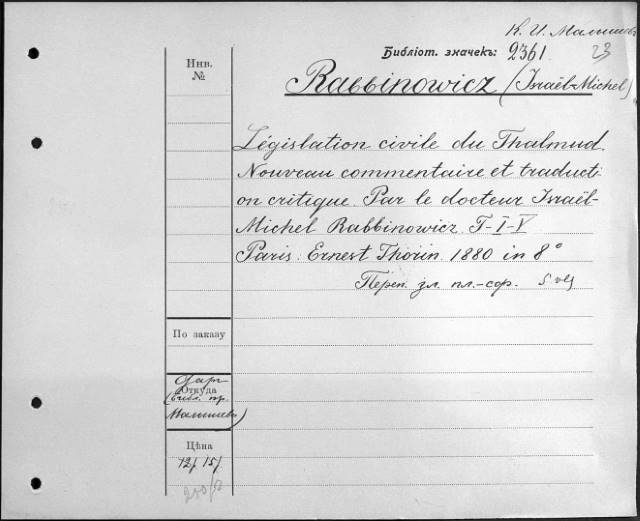 К. И. Малышевъ
Библіот. значекъ: 2361
23
Rabbinowicz (Israël-Michel)
Инв.
№
Législation civile du Thalmud.
Nouveau commentaire et traducti
on critique. Par le docteur Israël-
Michel Rabbinowicz. T-I-V
Paris. Ernest Thorin. 1880 in 8°
Переп. зл. пл.-сар. 5 vol
По заказу
Даръ
Откуда
(библ. пр.
Малышева)
Цѣна
12/ 15/